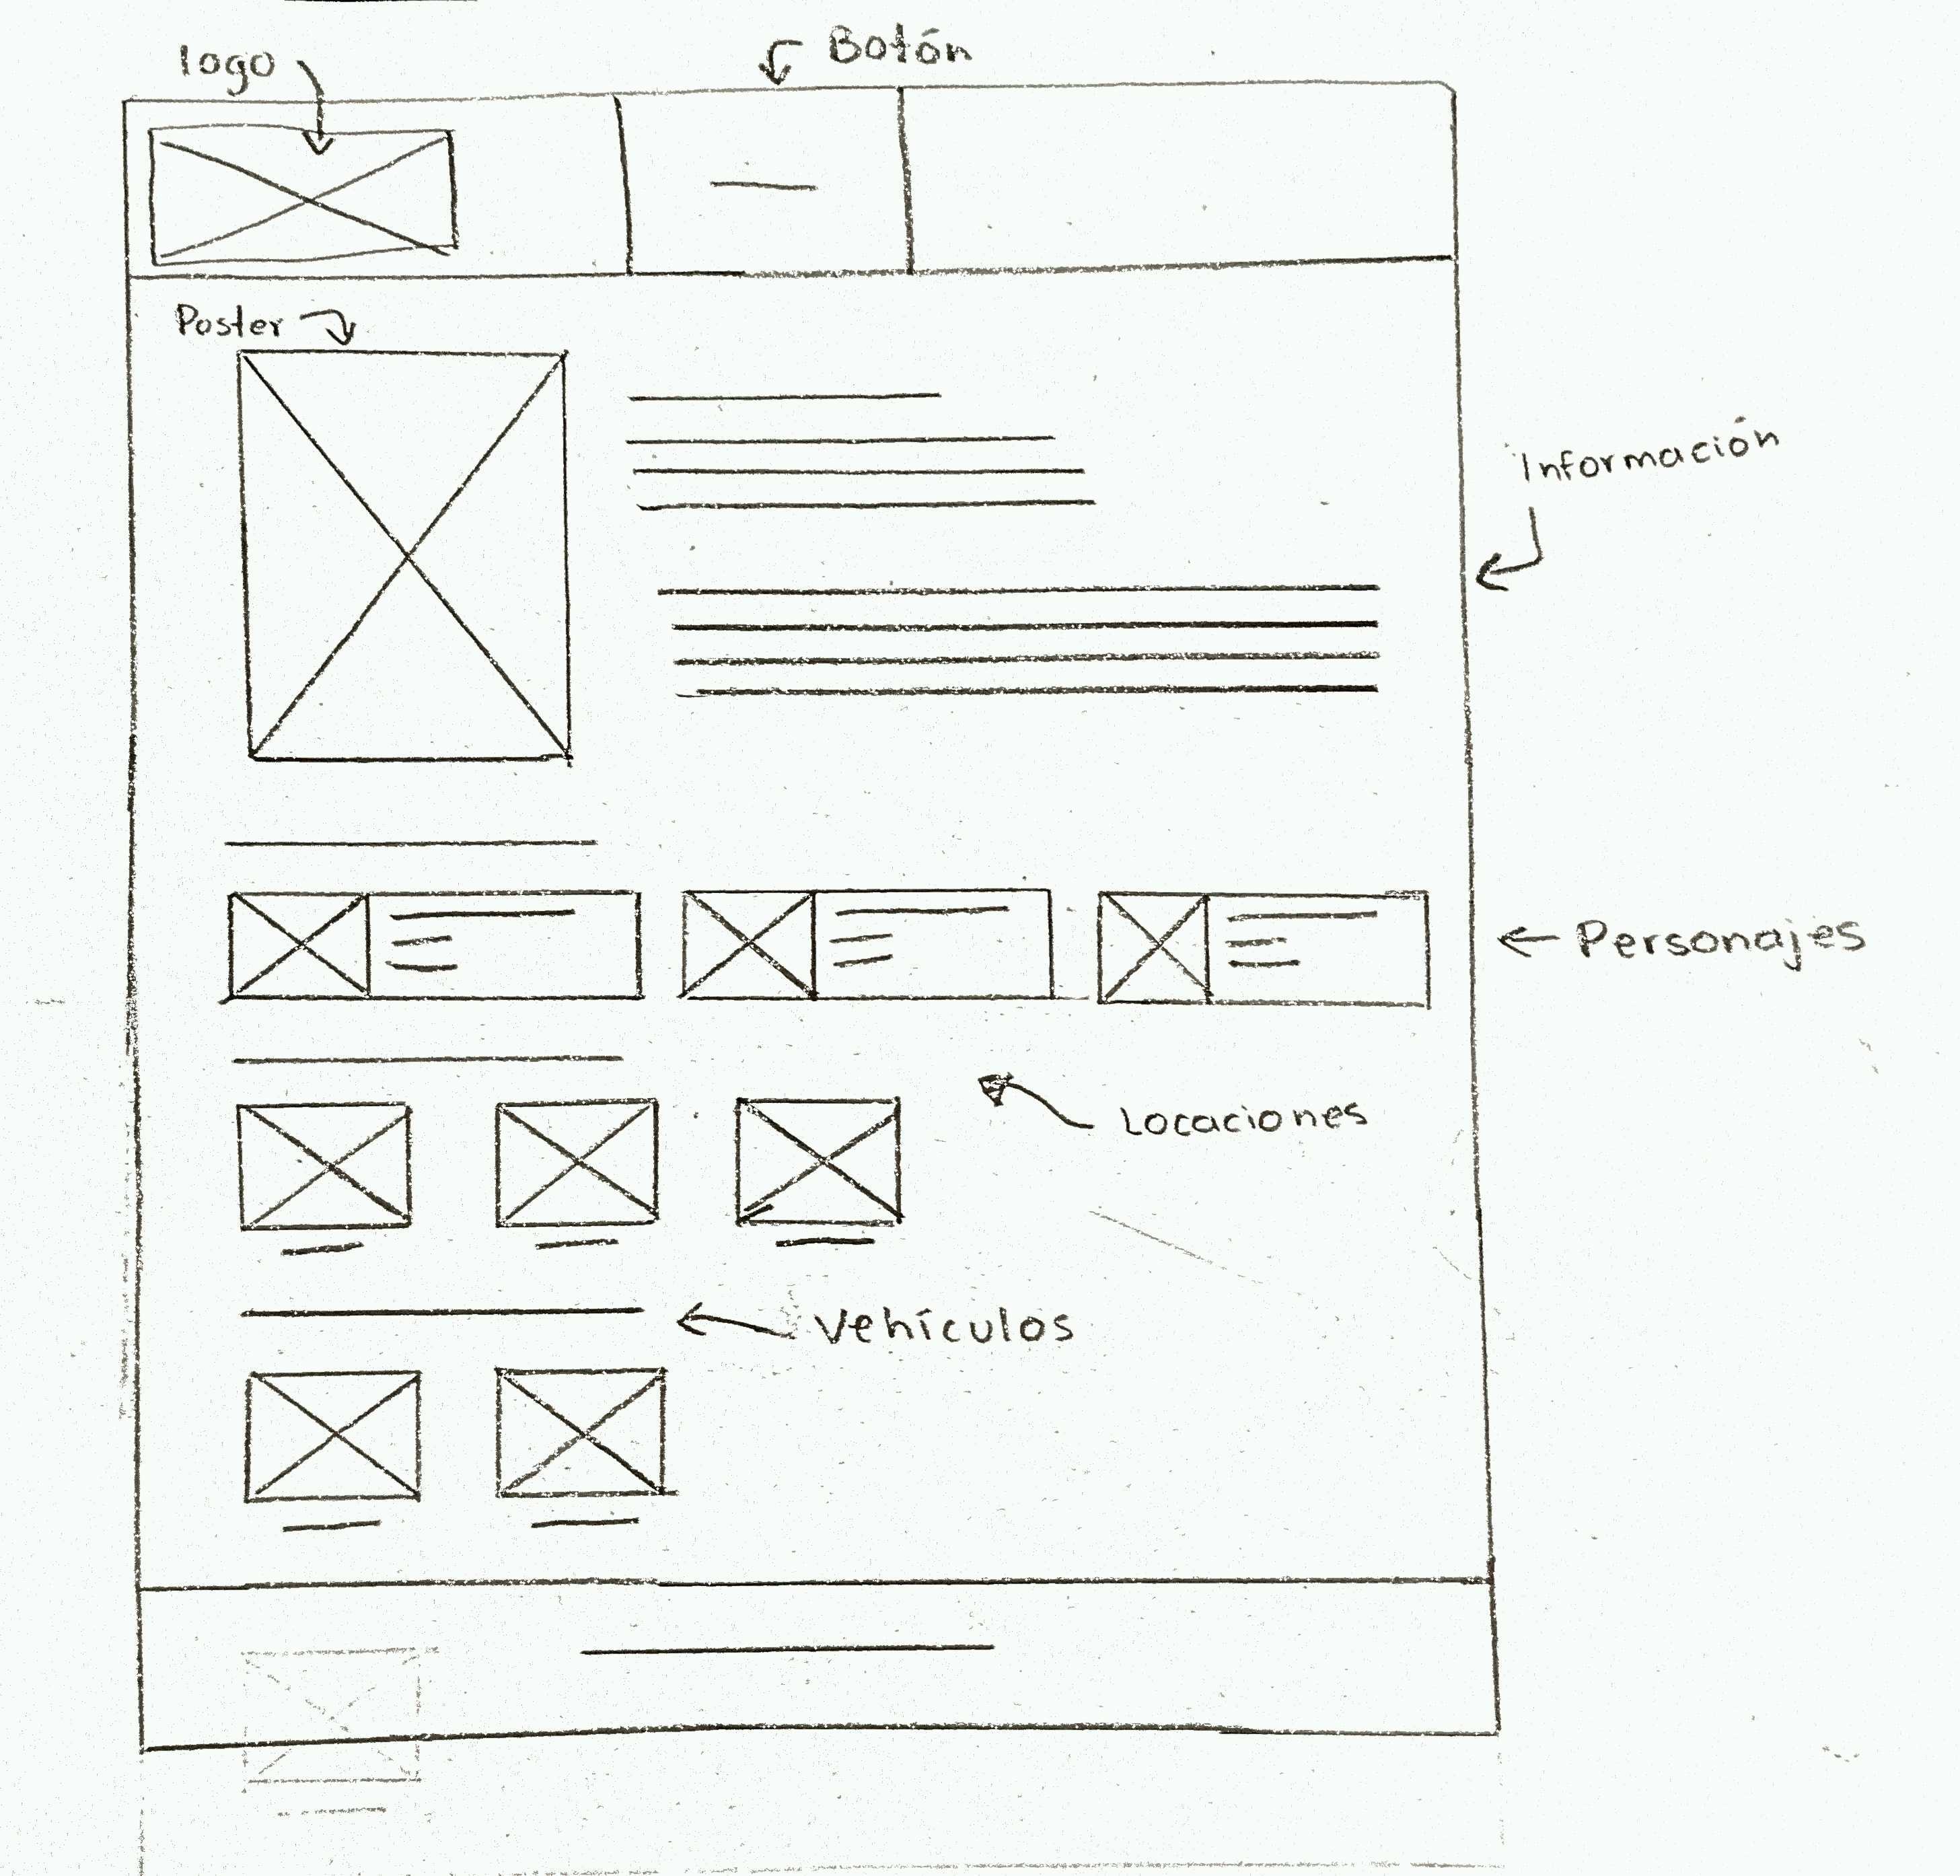 logo
Botón
Poster
Información
Personajes
Locaciones
Vehículos